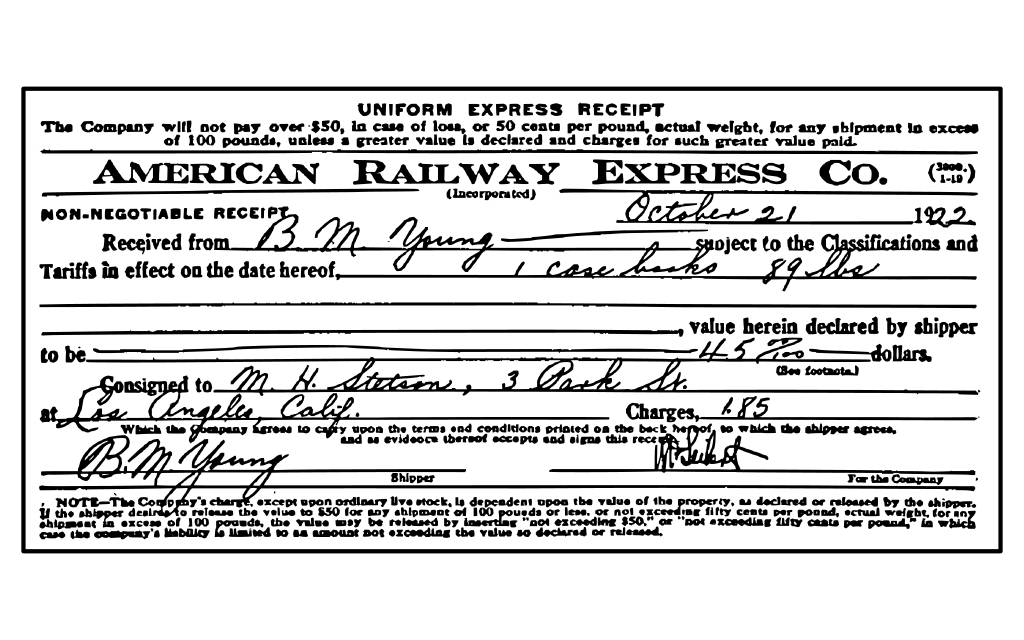 UNIFORM EXPRESS RECEIPT
The Company will not pay over $50, in case of loss, or 50 cents per pound, actual weight, for any shipment in excess
of 100 pounds, unless a greater value is declared and charges for such greater value paid.
AMERICAN RAILWAY EXPRESS CO. (3000. 1-19)
(Incorporated)
NON-NEGOTIABLE RECEIPT October 21 1922.
Received from B. M. Young subject to the Classifications and
Tariffs in effect on the date hereof, 1 case books 89 lbs
, value herein declared by shipper
to be 45 no/100 dollars.
(See footnote.)
Consigned to M. H. Stetson, 3 Park St.
at Los Angeles, Calif. Charges, 1.85
Which the Company agrees to carry upon the terms and conditions printed on the back hereof, to which the shipper agrees,
and as evidence thereof accepts and signs this receipt.
B. M. Young
Shipper For the Company
NOTE—The Company's charge, except upon ordinary live stock, is dependent upon the value of the property, as declared or released by the shipper.
If the shipper desires to release the value to $50 for any shipment of 100 pounds or less, or not exceeding fifty cents per pound, actual weight, for any
shipment in excess of 100 pounds, the value may be released by inserting "not exceeding $50," or "not exceeding fifty cents per pound," in which
case the company's liability is limited to an amount not exceeding the value so declared or released.